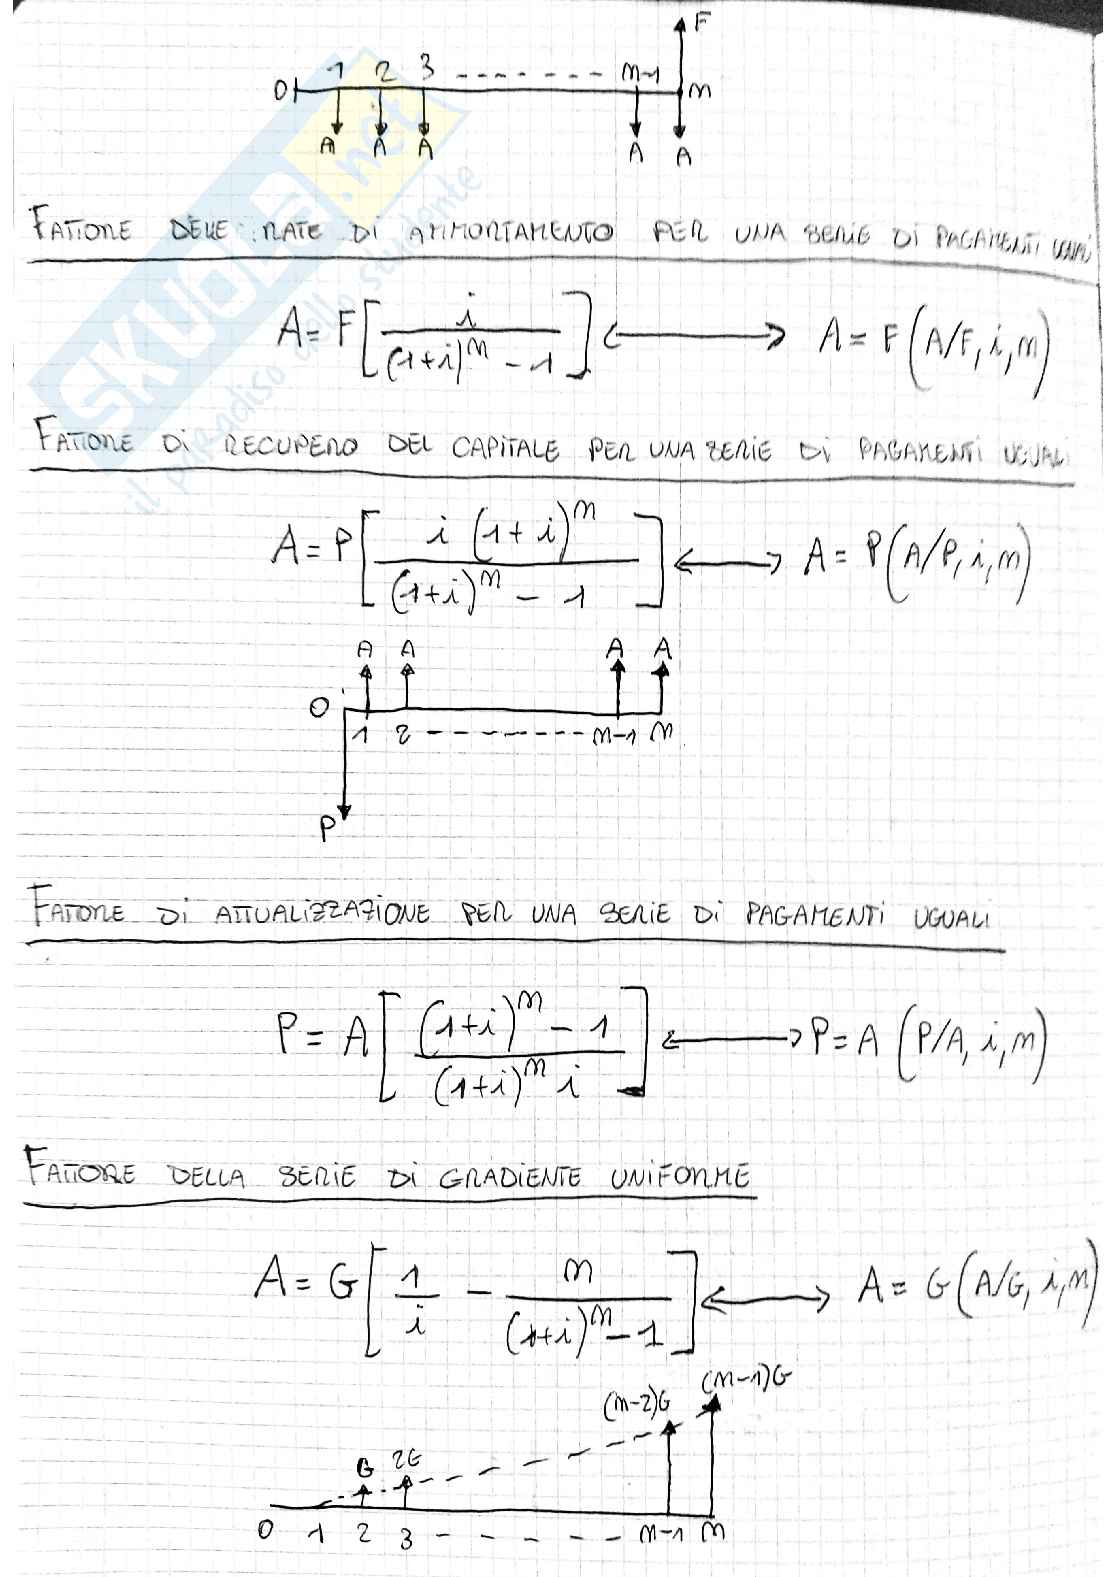 F
0 1 2 3 ------- n-1 n
A A A A A
FATTORE DELLE RATE DI AMMORTAMENTO PER UNA SERIE DI PAGAMENTI UGUALI
A = F [ i / ((1+i)^n - 1) ] <-> A = F (A/F, i, n)
FATTORE DI RECUPERO DEL CAPITALE PER UNA SERIE DI PAGAMENTI UGUALI
A = P [ i (1+i)^n / ((1+i)^n - 1) ] <-> A = P (A/P, i, n)
A A A A
0 1 2 --------- n-1 n
P
FATTORE DI ATTUALIZZAZIONE PER UNA SERIE DI PAGAMENTI UGUALI
P = A [ ((1+i)^n - 1) / ((1+i)^n i) ] <-> P = A (P/A, i, n)
FATTORE DELLA SERIE DI GRADIENTE UNIFORME
A = G [ 1/i - n / ((1+i)^n - 1) ] <-> A = G (A/G, i, n)
G 2G (n-2)G (n-1)G
0 1 2 3 - - - - - n-1 n
SKUOLA.net
il paradiso dello studente